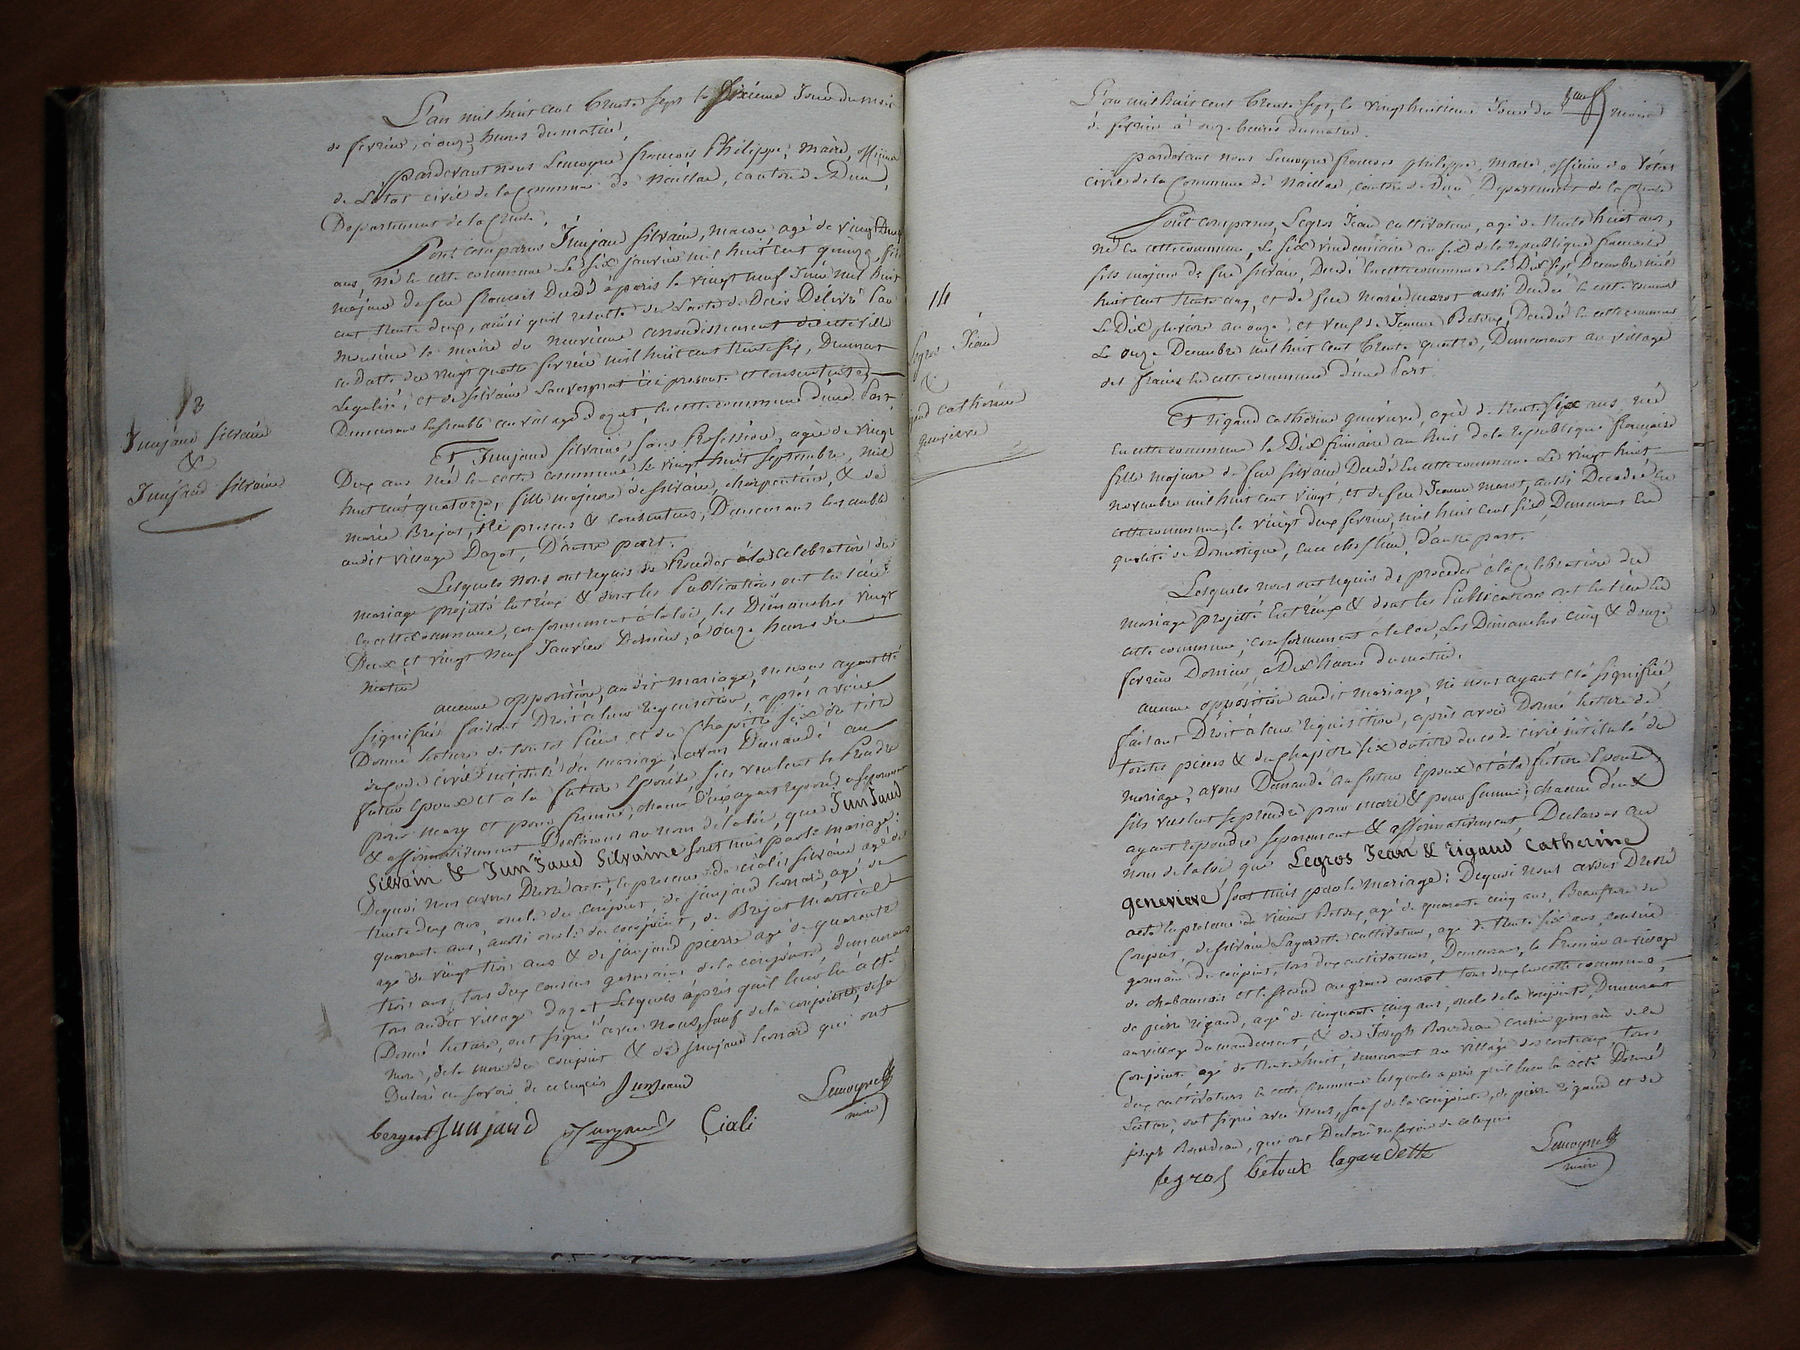 L'an mil huit cent trente sept le sixieme Jour du mois
de fevrier, à onze heures du matin,
pardevant nous Lemoyne françois Philippe, maire, officier
de L'état civil de la Commune de Naillat, canton de Dun,
Departement de la Creuse,
Sont comparus Junjaud Silvain, macon, agé de vingt deux
ans, né en cette commune le six janvier mil huit cent quinze, fils
majeur de feu françois Decédé à paris le vingt neuf Juin mil huit
cent trente deux, ainsi qu'il resulte de L'acte de Décès Délivré Par
monsieur le maire du neuvieme arrondissement de cette ville
en datte du vingt quatre fevrier mil huit cent trente six, Duement
Legalisé, et de Silvaine Sauvagnat ici presente et consentente,
Demeurans Ensemble au village d'azat, en cette commune d'une Part,
13
Junjaud Silvain
&
Junjaud Silvaine
Et Junjaud Silvaine, Sans Profession, agée de vingt
Deux ans née en cette commune le vingt huit septembre, mil
huit cent quatorze, fille majeure de Silvain, charpentier, & de
marie Brejat, ici presens & consentens, Demeurans Ensemble
audit village Dazat, D'autre part.
Lesquels nous ont requis de Proceder à la celebration du
mariage projetté Entr'eux & dont les Publications ont eu lieu
en cette commune, conformement à la loi, les Dimanches vingt
Deux et vingt neuf Janvier Dernier, à onze heures du
matin
aucune opposition, audit mariage, ne nous ayant été
signifiée faisant Droit à leur requisition, après avoir
Donné lecture de toutes pièces et du Chapitre six du titre
du code civil intitulé du mariage, avons Demandé au
futur Epoux et à la future Epouse s'ils veulent se Prendre
pour mary et pour femme, chacun d'eux ayant repondu separement
& affirmativement Declarons au nom de la loi, que Junjaud
Silvain & Junjaud Silvaine sont unis par le mariage:
Dequoi Nous avons Dressé acte, en presence de cialis silvain agé de
trente deux ans, oncle du conjoint, de junjaud leonard, agé de
quarante ans, aussi oncle du conjoint, de Brejat martial
agé de vingt trois ans & de junjaud pierre agé de quarante
trois ans, tous deux cousins germains de la conjointe, demeurans
tous audit village dazat Lesquels après qu'il leur en a été
Donné lecture, ont signé avec Nous, sauf de la conjointe, de sa
mere, de la mere du conjoint & de junjaud leonard qui ont
Declaré ne savoir de ce enquis Junjaud
Lemoyne
maire
Junjaud Junjaud Ciali
L'an mil huit cent trente sept, le vingt huitieme Jour du mois
de fevrier à onze heures du matin.
pardevant nous Lemoyne francois philippe, maire, officier de L'état
civil de la Commune de Naillat, canton de Dun Departement de la Creuse
Sont comparus, Legros Jean cultivateur, agé de trente huit ans,
né en cette commune, Le six vendemiaire an six de la republique francaise
fils majeur de feu Silvain, Decédé En cette commune Le Dix sept Decembre mil
huit cent trente cinq, et de feu marie marot aussi Decedée en cette commune
Le Dix pluviose an onze, et veuf de Jeanne Betoux, Decedée En cette commune
Le onze Decembre mil huit cent trente quatre, Demeurant au village
des fraises En cette commune D'une Part.
14
Legros Jean
&
Rigaud Catherine
Genevieve
Et Rigaud Catherine genevieve, agée de trente six ans, née
En cette commune le Dix frimaire an huit de la republique francaise
fille majeure de feu Silvain Decédé En cette commune Le vingt huit
novembre mil huit cent vingt, et de feu Jeanne Marot, aussi Decedée En
cette commune, le vingt deux fevrier, mil huit cent six, Demeurant En
qualité de Domestique, au chef lieu, d'autre part.
Lesquels nous ont requis de proceder à la Celebration du
mariage projetté Entr'eux & dont les Publications ont eu lieu En
cette commune, conformement à la loi, Les Dimanches Cinq & douze
fevrier Dernier, à Dix heures du matin.
aucune opposition audit mariage, ne nous ayant été signifiée,
faisant Droit à leur requisition, après avoir Donné lecture de
toutes pièces & du chapitre six du titre du code civil intitulé du
mariage, avons Demandé au futur Epoux et à la future Epouse
s'ils veulent se prendre pour mari & pour femme, chacun d'eux
ayant repondu separement & affirmativement Declarons au
nom de la loi que Legros Jean & rigaud Catherine
genevieve sont unis par le mariage: Dequoi nous avons Dressé
acte en presence de vincent Betoux, agé de quarante cinq ans, Beaufrere du
Conjoint, de silvain Lagardette cultivateur, agé de trente six ans, cousin
germain du conjoint, tous deux cultivateurs, Demeurans, le Premier au village
de chabannais et le second au grand tous deux en cette commune,
de pierre rigaud, agé de cinquante cinq ans, oncle de la conjointe, Demeurant
au village du mandement, & de Joseph Bourdeau cousin germain de la
Conjointe agé de trente huit, demeurant au village des tous
deux cultivateurs en cette commune lesquels après qu'il leur en a été Donné
Lecture, ont signé avec Nous, sauf de la conjointe, de pierre rigaud et de
joseph Bourdeau, qui ont Declaré ne savoir de ce enquis
Legros betoux lagardette
Lemoyne
maire